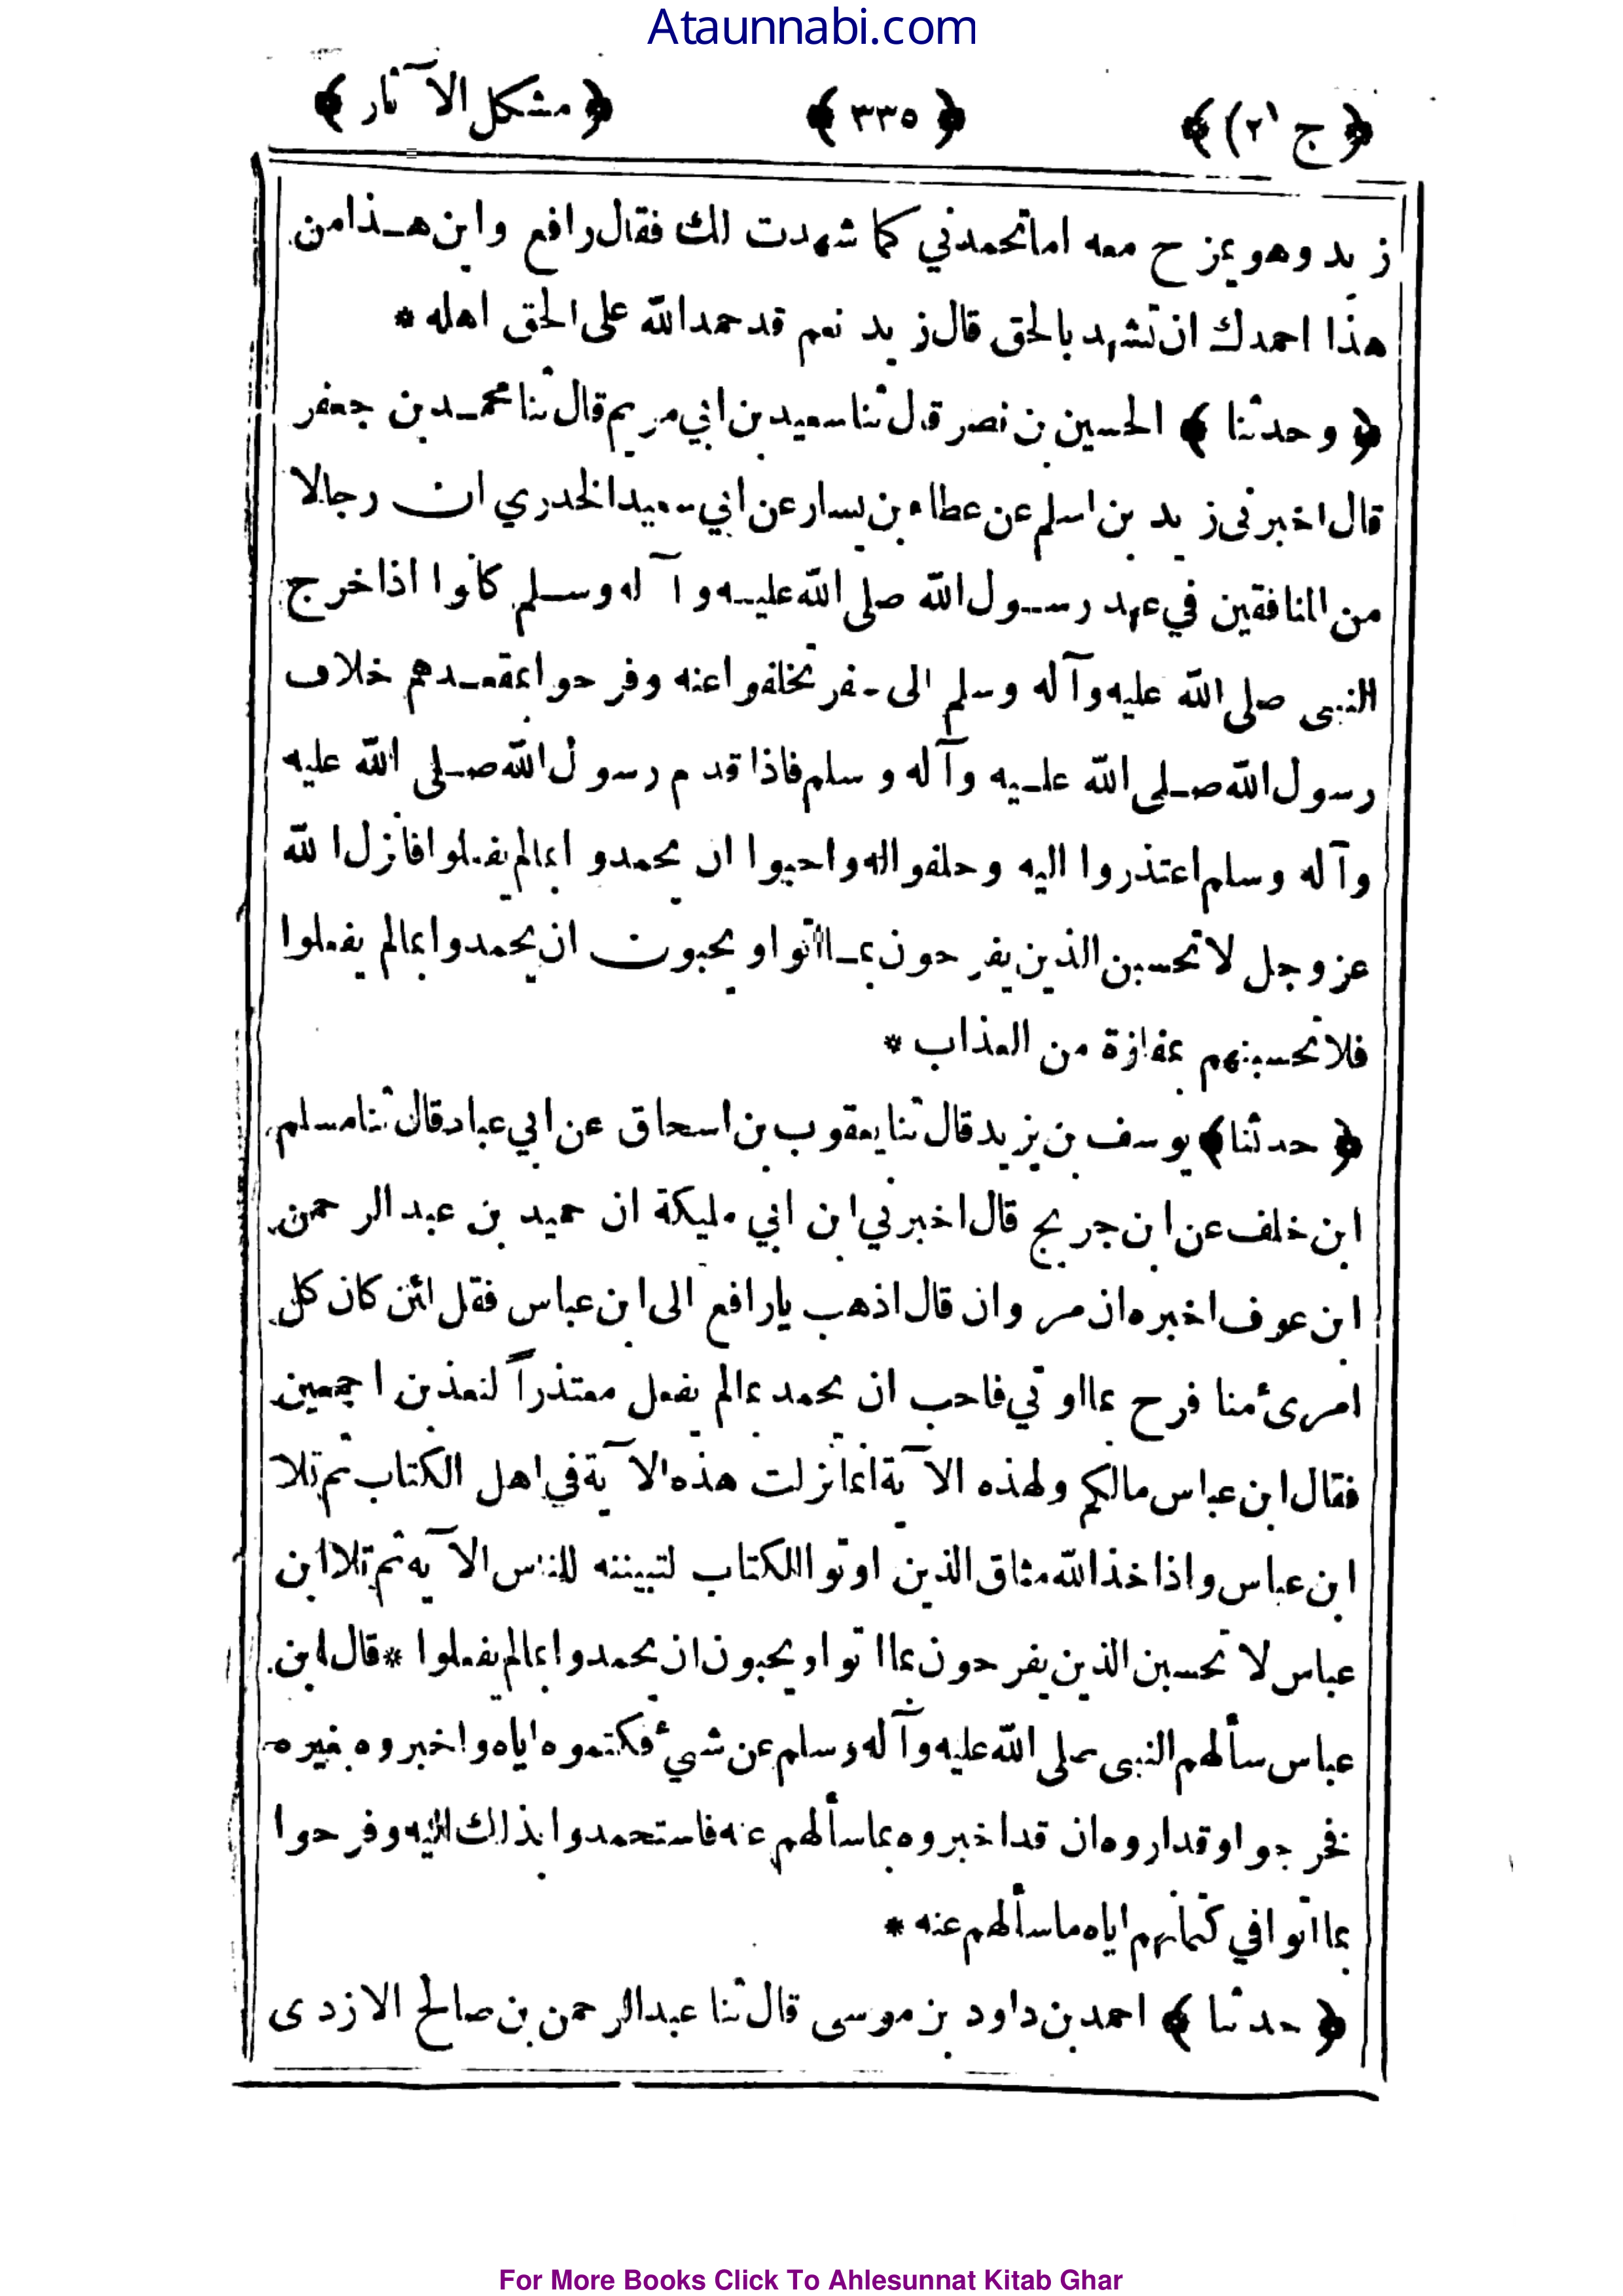 Ataunnabi.com
﴿ ج ٢) ﴾ ﴿ ٣٣٥ ﴾ ﴿ مشكل الآثار ﴾
زيد وهو يمزح معه اما تحمدني كما شهدت لك فقال رافع واين هذا من
هذا احمدك ان تشهد بالحق قال زيد نعم قد حمد الله على الحق اهله *
﴿ وحدثنا ﴾ الحسين بن نصر قال ثنا سعيد بن ابي مريم قال ثنا محمد بن جعفر
قال اخبرنى زيد بن اسلم عن عطاء بن يسار عن ابي سعيد الخدري ان رجالا
من المنافقين في عهد رسول الله صلى الله عليه وآله وسلم كانوا اذا خرج
النبى صلى الله عليه وآله وسلم الى سفر تخلفوا عنه وفرحوا بمقعدهم خلاف
رسول الله صلى الله عليه وآله وسلم فاذا قدم رسول الله صلى الله عليه
وآله وسلم اعتذروا اليه وحلفوا له واحبوا ان يحمدوا بمالم يفعلوا فانزل الله
عزوجل لا تحسبن الذين يفرحون بما اتوا ويحبون ان يحمدوا بمالم يفعلوا
فلا تحسبنهم بمفازة من العذاب *
﴿ حدثنا ﴾ يوسف بن يزيد قال ثنا يعقوب بن اسحاق عن ابي عباد قال ثنا مسلم
ابن خلف عن ابن جريج قال اخبرني ابن ابي مليكة ان حميد بن عبد الرحمن
ابن عوف اخبره ان مروان قال اذهب يا رافع الى ابن عباس فقل لئن كان كل
امرىء منا فرح بما اوتي فاحب ان يحمد بمالم يفعل معتذراً لنعذبن اجمعين
فقال ابن عباس مالكم ولهذه الآية انما نزلت هذه الآية في اهل الكتاب ثم تلا
ابن عباس واذا خذ الله مثاق الذين اوتوا الكتاب لتبيننه للناس الآيه ثم تلا ابن
عباس لا تحسبن الذين يفرحون بما اتوا ويحبون ان يحمدوا بمالم يفعلوا * قال ابن
عباس سألهم النبى صلى الله عليه وآله وسلم عن شيء فكتموه اياه واخبروه بغيره
فخرجوا وقد اروه ان قد اخبروه بما سألهم عنه فاستحمدوا بذلك اليه وفرحوا
بما اتوا في كتمانهم اياه ما سألهم عنه *
﴿ حدثنا ﴾ احمد بن داود بن موسى قال ثنا عبد الرحمن بن صالح الازدى
For More Books Click To Ahlesunnat Kitab Ghar